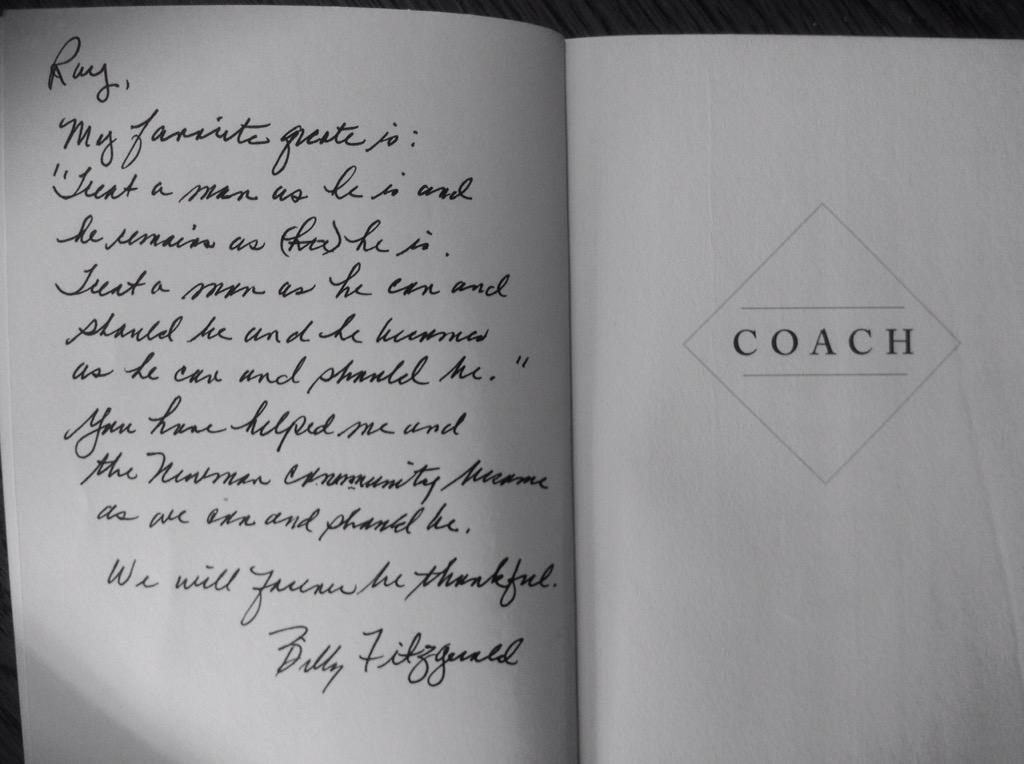 Ray,
My favorite quote is:
"Treat a man as he is and
he remains as (he) he is.
Treat a man as he can and
should be and he becomes
as he can and should be."
You have helped me and
the Newman community become
as we can and should be.
We will forever be thankful.
Billy Fitzgerald
COACH